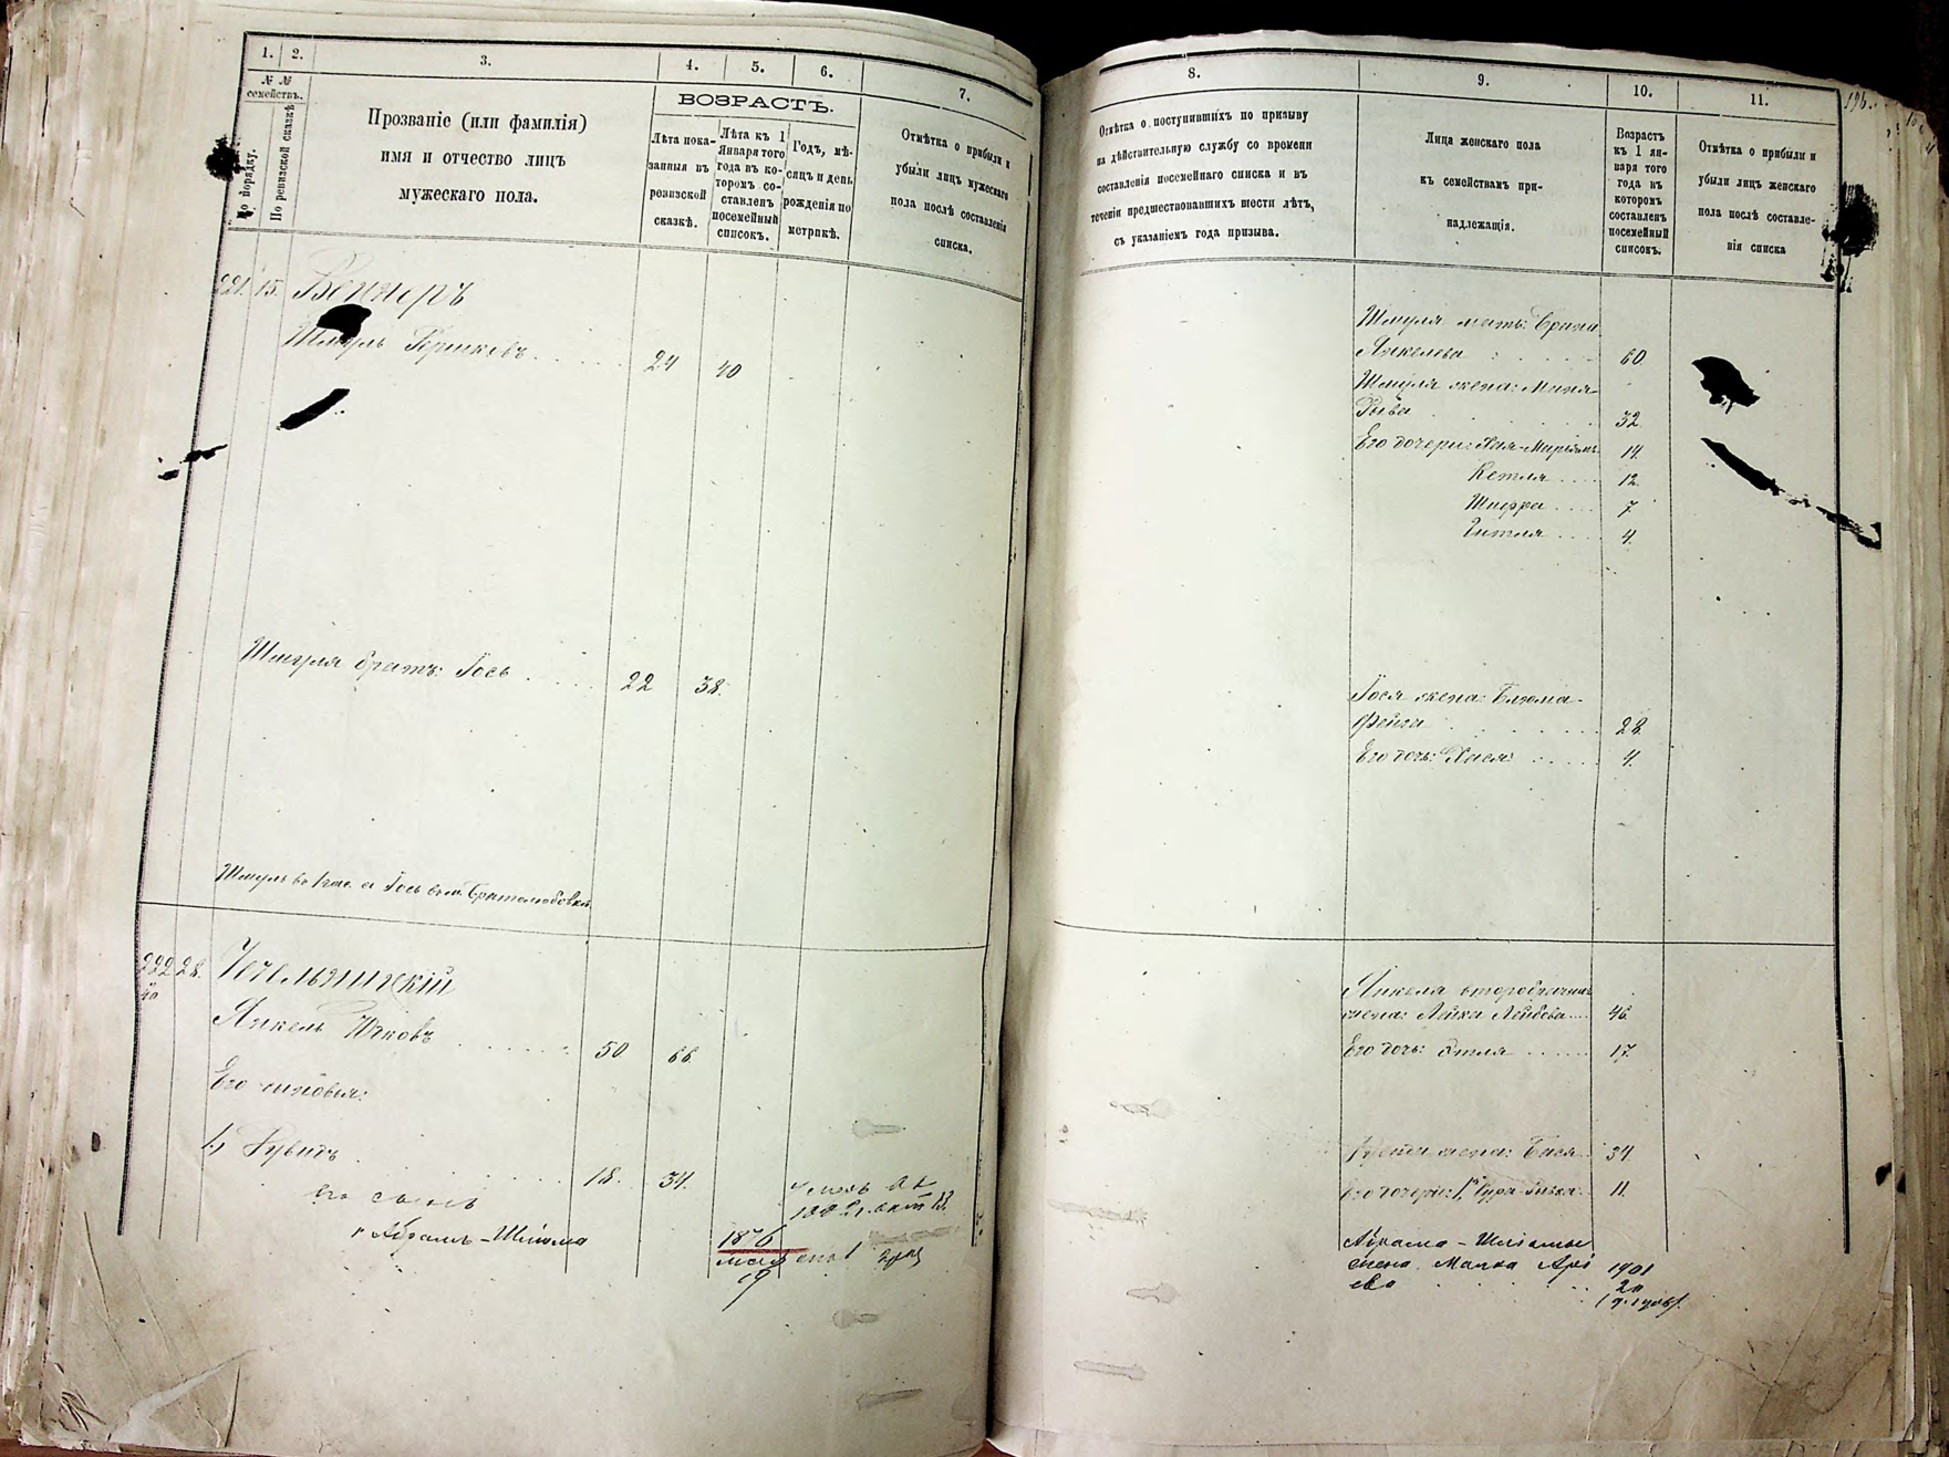 1. 2. 3. 4. 5. 6. 7.
№ №
семействъ.
По порядку.
По ревизской сказкѣ
Прозваніе (или фамилія)
имя и отчество лицъ
мужескаго пола.
ВОЗРАСТЪ.
Лѣта пока-
занныя въ
ревизской
сказкѣ.
Лѣта къ 1
Января того
года въ ко-
торомъ со-
ставленъ
посемейный
списокъ.
Годъ, мѣ-
сяцъ и день
рожденія по
метрикѣ.
Отмѣтка о прибыли и
убыли лицъ мужескаго
пола послѣ составленія
списка.
221. 15. Веннеръ
Шмуль Берковъ 24 40
Шмуля братъ: Іось 22 38.
Шмуль въ и Іось въ м. Братолюбовкѣ
222 28. Чечельницкій
Янкель Ицковъ 50 66
Его сыновья:
1, Рувинъ 18. 34.
его сынъ
Абрамъ-Шліома 1876
мая
19
8. 9. 10. 11.
Отмѣтка о поступившихъ по призыву
на дѣйствительную службу со времени
составленія посемейнаго списка и въ
теченіи предшествовавшихъ шести лѣтъ,
съ указаніемъ года призыва.
Лица женскаго пола
къ семействамъ при-
надлежащія.
Возрастъ
къ 1 ян-
варя того
года въ
котором
составленъ
посемейный
списокъ.
Отмѣтка о прибыли и
убыли лицъ женскаго
пола послѣ составле-
нія списка
196.
Шмуля мать: Брана
Янкелева 60
Шмуля жена: Маня-
Рыва 32
Его дочери: Хая-Мирьямъ 14
Кетля 12
Шифра 7
Гитля 4.
Іося жена: Блюма-
Фейга 28
Его дочь: Хася 4.
Янкеля второбрачная
жена: Лейка Лейбова 46
Его дочь: Этля 17
Рувина жена: Бася 34
Его дочери: 1, Сура-Ривка 11.
Абрама-Шліомы
жена Малка Арі
ева 1901
20